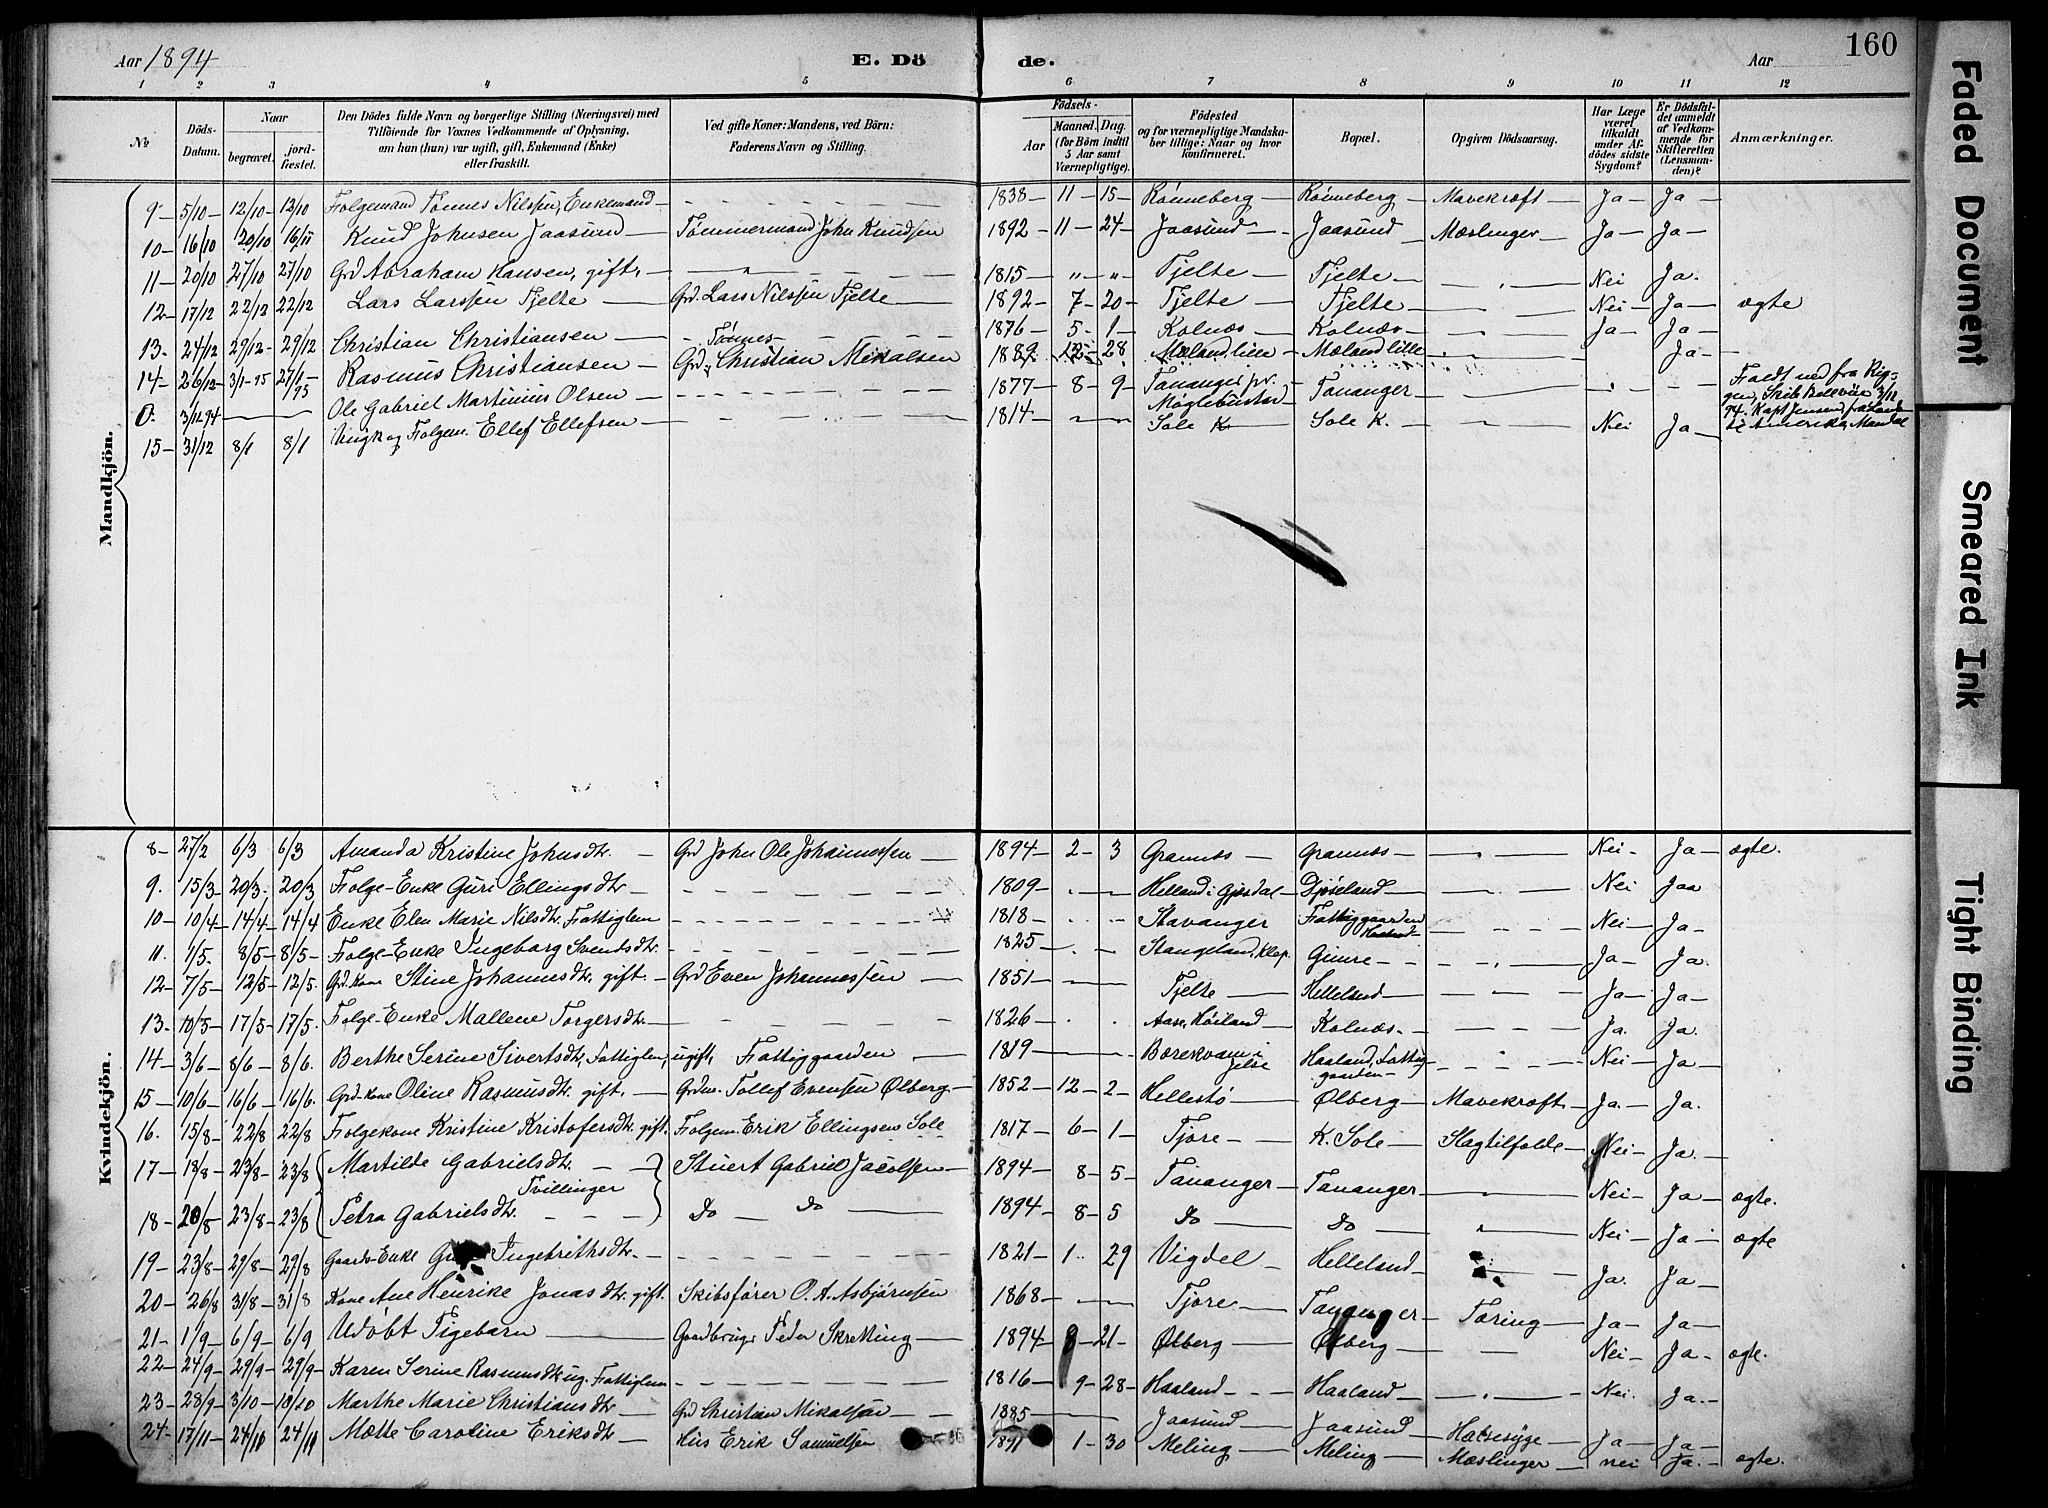 Aar 1894
E. Dö
de.
Aar
160
1 2 3 4 5 6 7 8 9 10 11 12
No.
Döds-Datum.
Naar
begravet.
jord-fæstet.
Den Dödes fulde Navn og borgerlige Stilling (Næringsvei) med
Tilföiende for Voxnes Vedkommende af Oplysning,
om han (hun) var ugift, gift, Enkemand (Enke)
eller fraskilt.
Ved gifte Koner: Mandens, ved Börn:
Faderens Navn og Stilling.
Födsels-
Aar
Maaned. Dag.
(for Börn indtil
5 Aar samt
Værnepligtige).
Födested
og for værnepligtige Mandska-
ber tillige: Naar og hvor
konfirmeret.
Bopæl.
Opgiven Dödsaarsag.
Har Læge
været
tilkaldt
under Af-
dödes sidste
Sygdom?
Er Dödsfal-
det anmeldt
af Vedkom-
mende for
Skifteretten
(Lensman-
den)?
Anmærkninger.
Mandkjön.
9 - 5/10 - 12/10 - 13/10 Folgemand Tønnes Nilsen, Enkemand - 1838 - 11 - 15 - Rønneberg - Rønneberg - Mavekræft - Ja - Ja -
10 - 16/10 20/10 16/11 Knud Johnsen Jaasund - Tømmermand John Knudsen 1892 - 11 - 24 - Jaasund - Jaasund - Mæslinger - Ja - Ja -
11 - 20/10 27/10 27/10 Grd Abraham Hansen, gift, - 1815 - " - " - Tjelte - Tjelte - Nei Ja.
12 - 17/12 22/12 22/12 Lars Larssen Tjelte - Grd. Lars Nilssen Tjelte - 1892 - 7 - 20 - Tjelte - Tjelte - Nei - Ja - ægte
13 - 24/12 29/12 - 29/12 Christian Christiansen - Tønnes - 1876 - 5 - 1 - Kolnæs - Kolnæs - Ja - Ja -
14 - 26/12 - 3/1-95 27/1-95 Rasmus Christiansen - Grd. Christian Mikalsen 1889 12 - 28 - Mæland, lille - Mæland lille Ja -
0. 3/12 94 - Ole Gabriel Martinius Olsen - 1877 - 8 - 9 - Tananger pr. Møglebustad Tananger - Faldt ned fra Rig-
gen, Skib 3/12
94. Kapt Jensen, fra
i Amerika, Mandal
15 - 31/12 8/1 8/1 Folgem. Ellef Ellefsen - 1814 - Sole K - Sole K. - Nei Ja -
Kvindekjön.
8 - 27/2 6/3 6/3 Amanda Kristine Johnsdtr. - Grd John Ole Johannessen - 1894 - 2 - 3 Grannes - Grannes - Nei - Ja - ægte.
9. 15/3 20/3. 20/3 Folge-Enke Guri Ellingsdtr - 1809 - Helland i Gjesdal - Djøseland - Nei Jaa
10 - 10/4 - 14/4 - 14/4 Enke Elen Marie Nilsdtr, Fattiglem - 1818 - Stavanger Fattiggaarden - Nei - Ja -
11. 1/5. 8/5 - 8/5 - Folge-Enke Ingeborg Svendsdtr. - 1825 - Stangeland, Klep. Gimre - Ja - Ja.
12 - 7/5 - 12/5 - 12/5. Grd. kone Stine Johannesdtr. gift. - Grd Even Johannessen - 1851 - Tjelte - Helleland - Ja - Ja -
13. - 10/5 - 17/5 - 17/5. Folge-Enke Mallene Torgersdtr - 1826 - Aase, Høiland - Kolnæs. - Ja. Ja.
14 - 3/6 - 8/6 - 8/6. Berthe Serine Sivertsdtr, Fattiglem, ugift, Fattiggaarden - 1819 - Bærekvam i Jelse Haaland, Fattig-gaarden - Nei - Ja -
15 - 10/6 - 16/6 - 16/6. Grd. kone Oline Rasmusdtr. gift. - Grdm. Tollef Evensen Ølberg - 1852 - 12 - 2 - Hellestø - Ølberg - Mavekræft - Ja. - Ja.
16. 15/8 - 22/8 22/8 Folgekone Kristine Kristofersdtr. gift. Folgem. Erik Ellingsen Sole 1817 - 6 - 1 - Tjore - K. Sole - Slagtilfælde - Nei - Ja. -
17 - 18/8 - 23/8 - 23/8 Martilde Gabrielsdtr. - - Stuert Gabriel Jacobsen - 1894 - 8 - 5 - Tananger - Tananger - Nei - Ja - ægte.
Tvillinger
18 - 20/8 23/8 - 23/8 Petra Gabrielsdtr. - - - Do - Do - 1894 - 8 - 5 Do - Do - Nei - Ja - ægte
19 - 23/8 - 29/8 - 29/8 Gaards-Enke Ingebrithsdtr. - 1821 - 1 - 29 Vigdel - Helleland - Ja. Ja -
20 - 26/8 31/8 - 31/8 Kone Ane Henrike Jonasdtr. gift. Skibsfører O. A. Asbjørnsen 1868 - Tjore - Tananger - Tæring - Ja - Ja -
21 - 1/9 - 6/9 - 6/9 Udøbt Pigebarn - Gaardbruger Peder Skretting - 1894 - 8 - 21 - Ølberg - Ølberg - Nei - Ja - ægte.
22 - 24/9 - 29/9 - 29/9 - Karen Serine Rasmusdtr ug. Fattiglem - 1816 - 9 - 28 - Haaland - Haaland - Nei. Ja. -
23 - 28/9 - 3/10 - 18/10 Marthe Marie Christiansdtr. - Grd Christian Mikalsen - 1885 - Jaasund - Jaasund - Halsesyge - Ja - Ja -
24 - 17/11 - 24/11 24/11 Mætte Caroline Eriksdtr - Hus Erik Samuelsen 1891 1 - 30 Meling - Meling - Mæslinger - nei Ja. - ægte.
Faded Document
Smeared Ink
Tight Binding